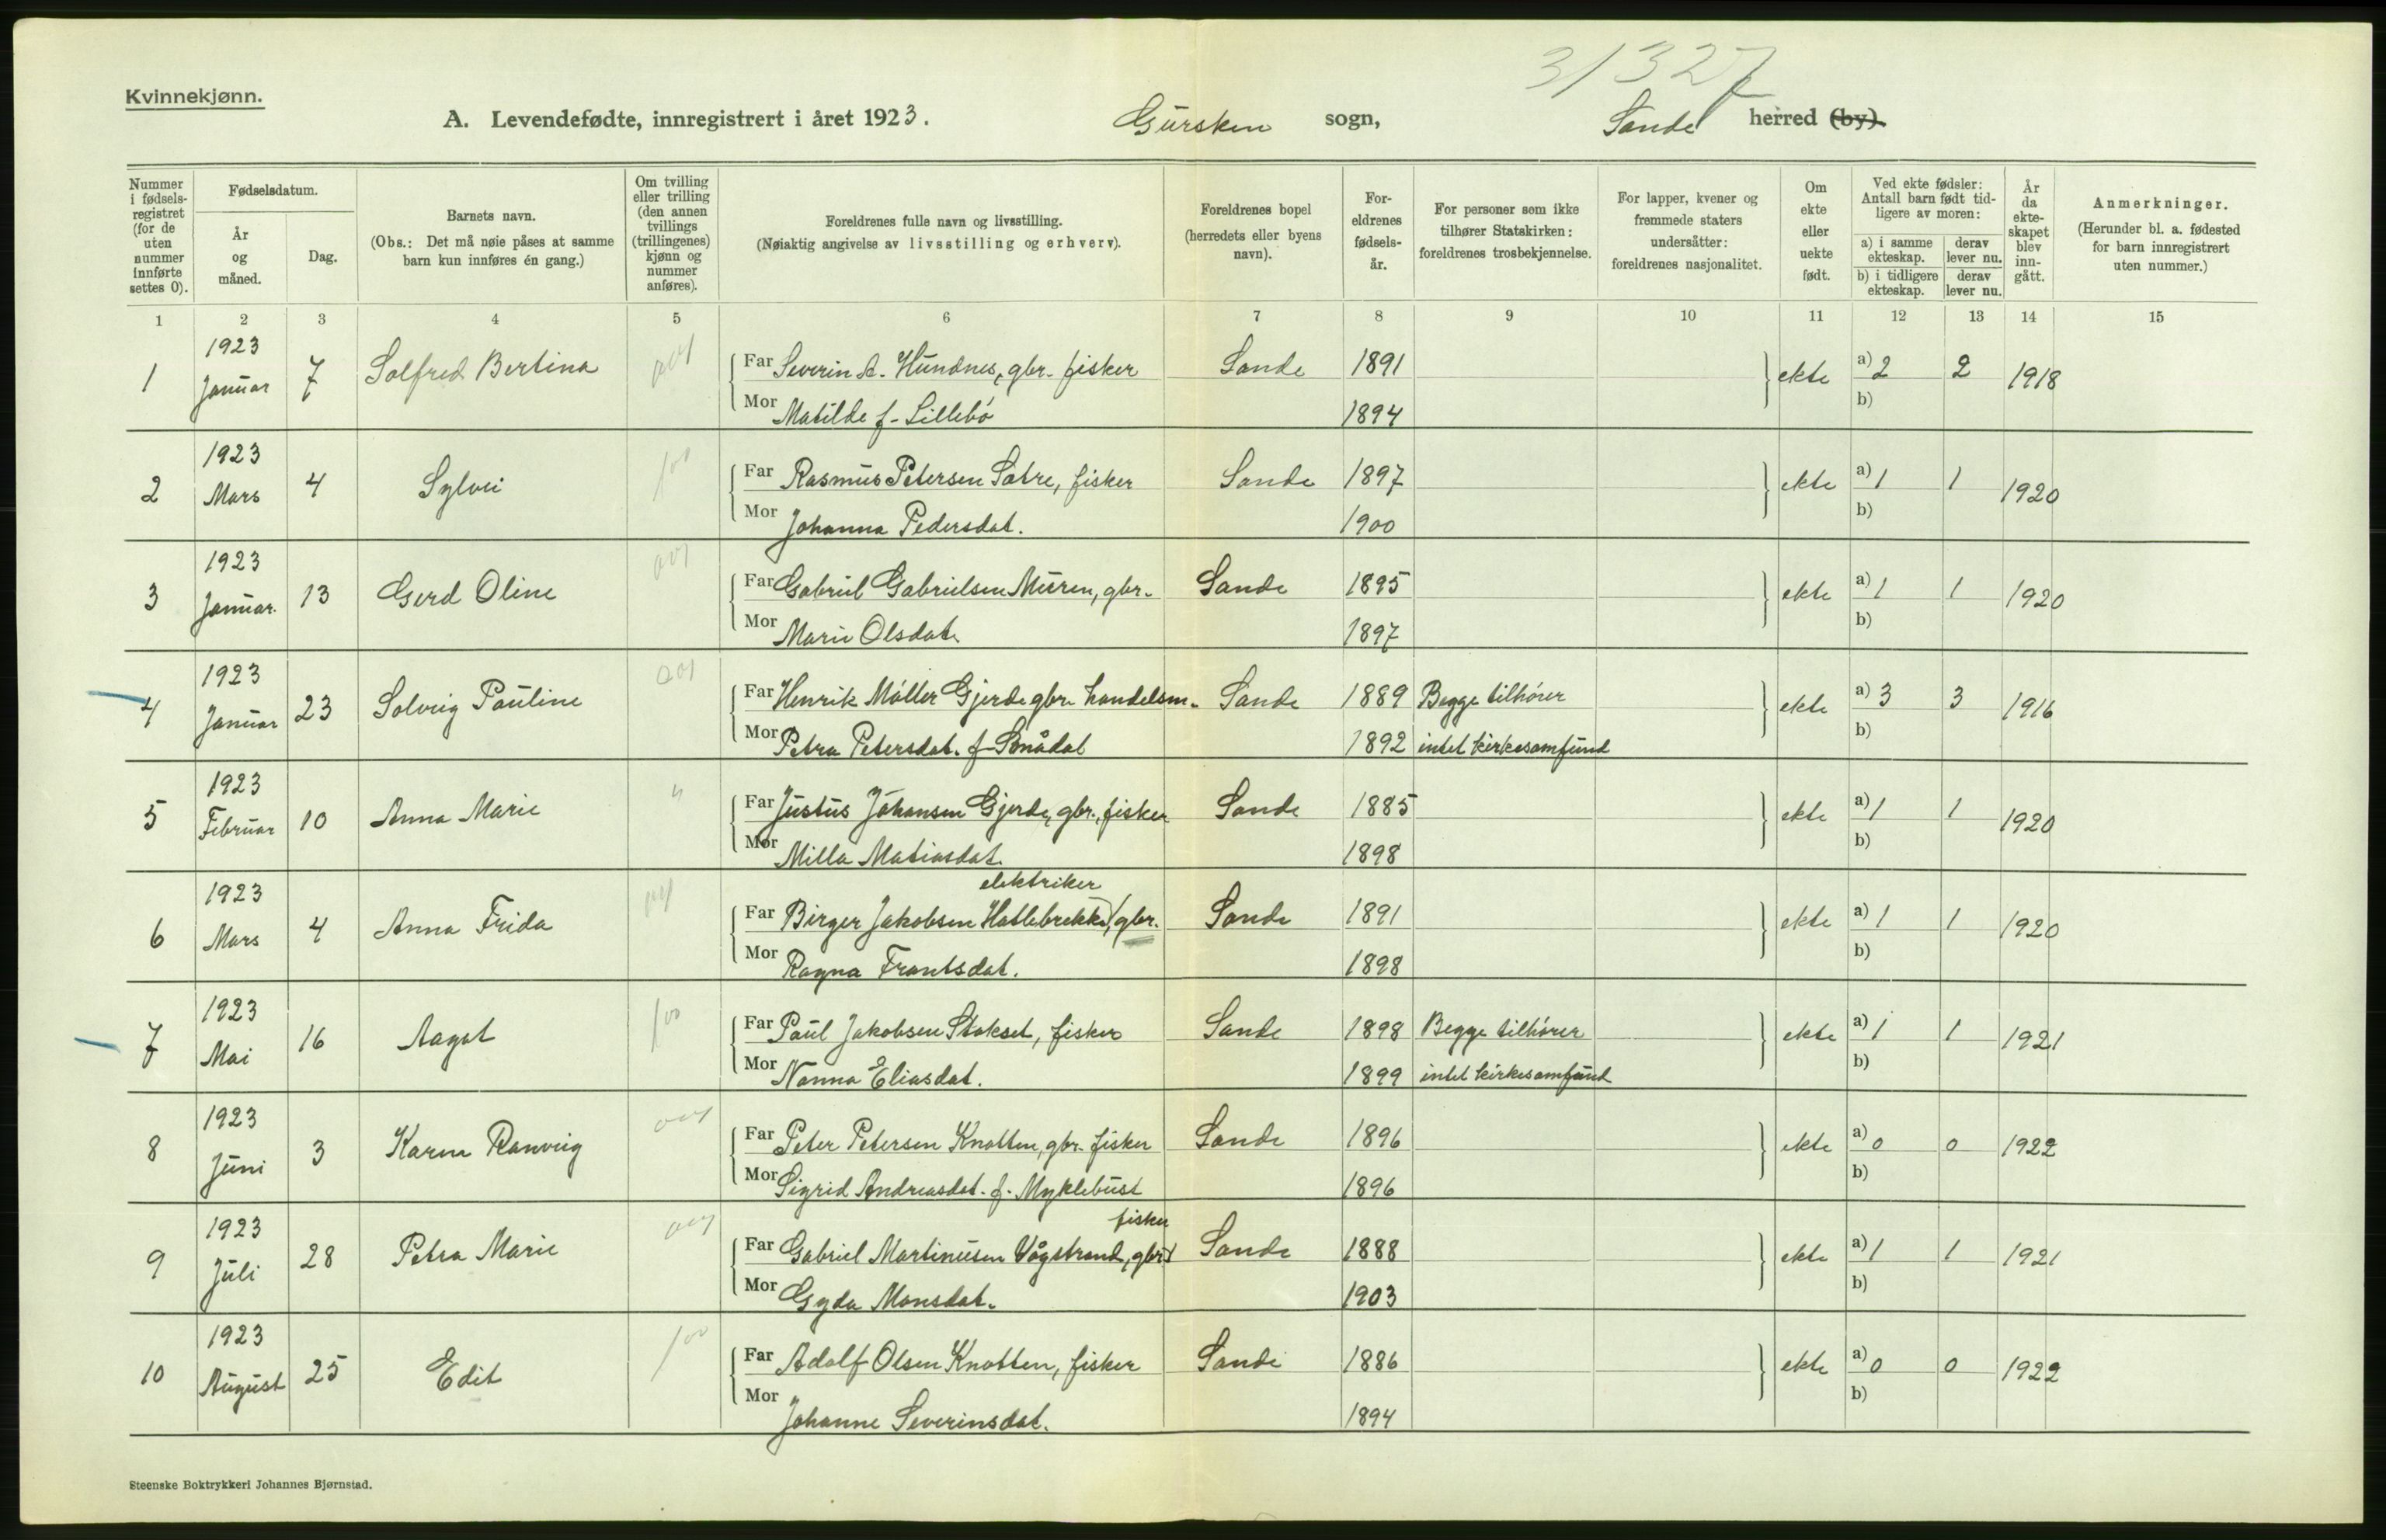 31327
Kvinnekjønn.
A. Levendefødte, innregistrert i året 1923. Gursken sogn, Sande herred (by).
Nummer i fødsels-registret (for de uten nummer innførte settes 0).
Fødselsdatum.
År og måned.
Dag.
Barnets navn.
(Obs.: Det må nøie påses at samme barn kun innføres én gang.)
Om tvilling eller trilling (den annen tvillings (trillingenes) kjønn og nummer anføres).
Foreldrenes fulle navn og livsstilling.
(Nøiaktig angivelse av livsstilling og erhverv).
Foreldrenes bopel (herredets eller byens navn).
For-eldrenes fødsels-år.
For personer som ikke tilhører Statskirken: foreldrenes trosbekjennelse.
For lapper, kvener og fremmede staters undersåtter: foreldrenes nasjonalitet.
Om ekte eller uekte født.
Ved ekte fødsler: Antall barn født tid-ligere av moren:
a) i samme ekteskap.
derav lever nu.
b) i tidligere ekteskap.
derav lever nu.
År da ekte-skapet blev inn-gått.
Anmerkninger.
(Herunder bl. a. fødested for barn innregistrert uten nummer.)
1 2 3 4 5 6 7 8 9 10 11 12 13 14 15
1 1923 Januar 7 Solfred Bertina Far Severin A. Hundnes, gbr. fisker Sande 1891 ekte a) 2 2 1918
Mor Matilde f. Lillebó 1894 b)
2 1923 Mars 4 Sylvi 100 Far Rasmus Petersen Sætre, fisker Sande 1897 ekte a) 1 1 1920
Mor Johanna Pedersdat. 1900 b)
3 1923 Januar. 13 Gerd Oline Far Gabriel Gabrielsen Muren, gbr. Sande 1895 ekte a) 1 1 1920
Mor Marie Olsdat. 1897 b)
4 1923 Januar 23 Solveig Pauline Far Henrik Móller Gjerde gbr. handelsm. Sande 1889 Begge tilhórer ekte a) 3 3 1916
Mor Petra Petersdat. f. 1892 intet kirkesamfund b)
5 1923 Februar 10 Anna Marie " Far Justus Johansen Gjerde, gbr., fisker Sande 1885 ekte a) 1 1 1920
Mor Milla Matiasdat. 1898 b)
elektriker
6 1923 Mars 4 Anna Frida Far Birger Jakobsen Hatlebrekke, gbr. Sande 1891 ekte a) 1 1 1920
Mor Ragna Frantsdat. 1898 b)
7 1923 Mai 16 Aagot 100 Far Paul Jakobsen Stokset, fisker Sande 1898 Begge tilhórer ekte a) 1 1 1921
Mor Nanna Eliasdat. 1899 intet kirkesamfund b)
8 1923 Juni 3 Karen Ranveig Far Peter Petersen Knotten, gbr. fisker Sande 1896 ekte a) 0 0 1922
Mor Sigrid Andreasdat. f. Myklebust 1896 b)
fisker
9 1923 Juli 28 Petra Marie Far Gabriel Martinusen Vågstrand, gbr. Sande 1888 ekte a) 1 1 1921
Mor Gyda Monsdat. 1903 b)
10 1923 August 25 Edit 100 Far Adolf Olsen Knotten, fisker Sande 1886 ekte a) 0 0 1922
Mor Johanne Severinsdat. 1894 b)
Steenske Boktrykkeri Johannes Bjørnstad.